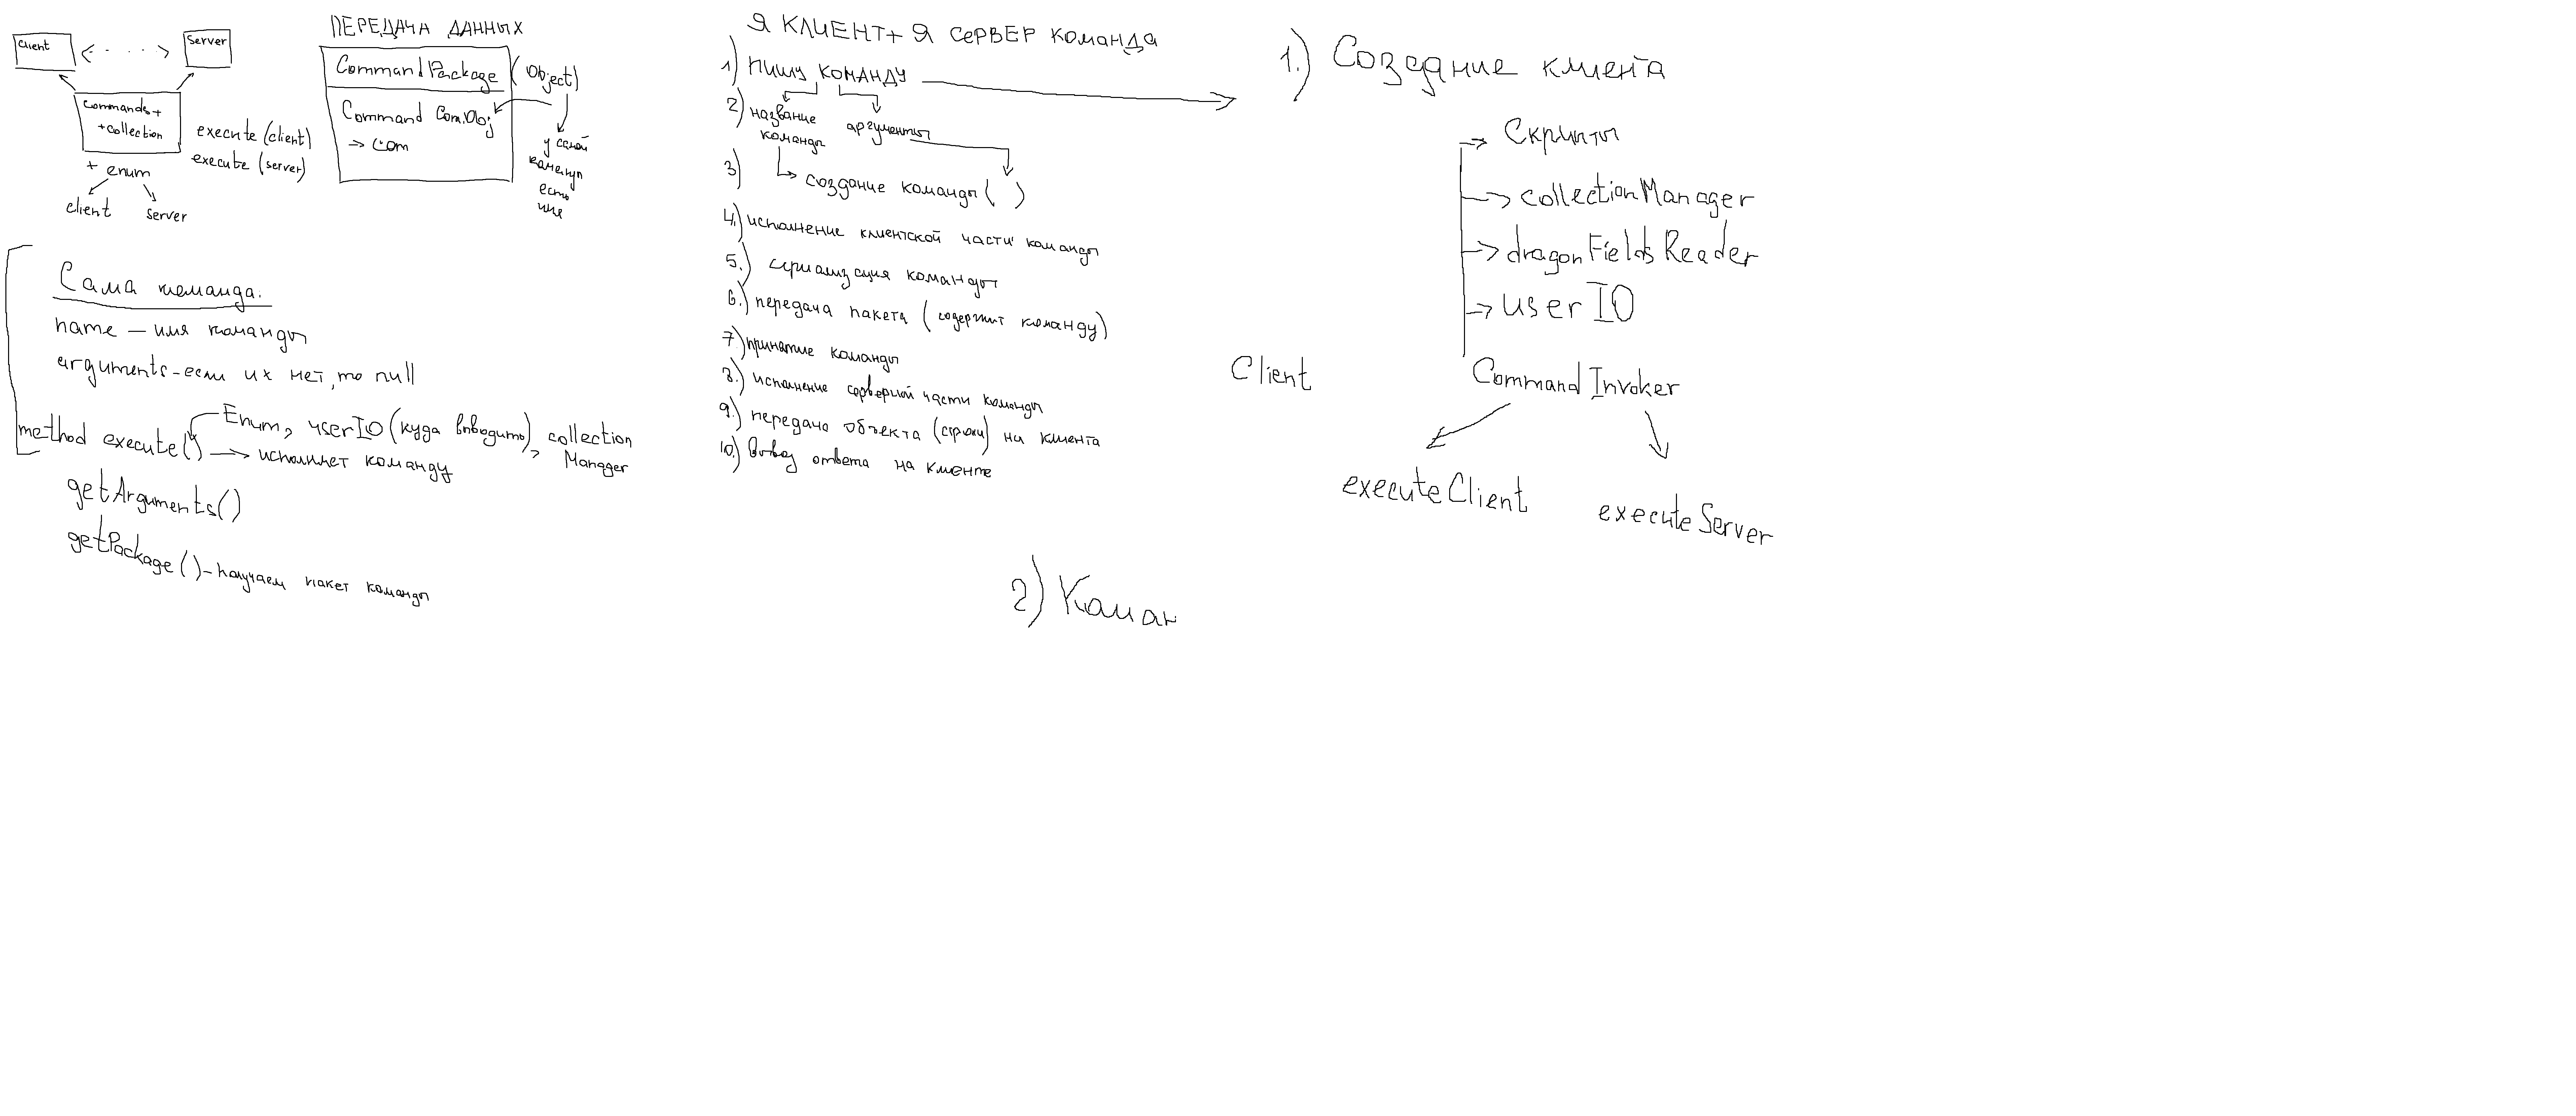 client
Server
commands +
+ collection
execute (client)
execute (server)
+ enum
client
server
ПЕРЕДАЧА ДАННЫХ
CommandPackage (Object)
Command Com.Obj
→ com
у самой
есть
имя
Сама команда.
name — имя команды
arguments - если их нет, то null
method execute() Enum, userIO (куда выводить), collection Manager
→ исполняет команду
getArguments()
getPackage() - получаем пакет команды
Я КЛИЕНТ + Я СЕРВЕР КОМАНДА
1) ПИШУ КОМАНДУ
2) название команды
аргументы
3) создание команды ( )
4.) исполнение клиентской части команды
5.) сериализация команды
6.) передача пакета (содержит команду)
7.) принятие команды
8.) исполнение серверной части команды
9.) передача объекта (строки) на клиента
10.) Вывод ответа на клиенте
1.) Создание клиента
Скрипты
collectionManager
dragonFieldsReader
userIO
Client
CommandInvoker
executeClient
executeServer
2) Коман